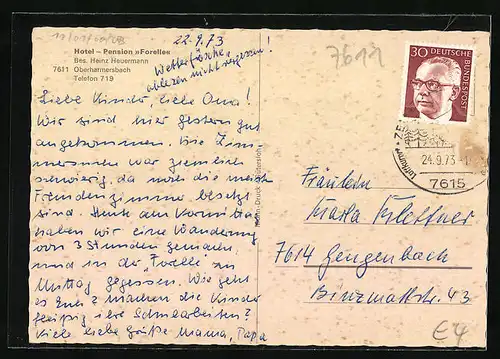 11/01700/28
22.9.73
Wetterfrösche
ablesen nicht vergessen!
Hotel – Pension »Forelle«
Bes. Heinz Heuermann
7611 Oberharmersbach
Telefon 719
Liebe Kinder, liebe Oma!
Wir sind hier gestern gut
angekommen. Die Zim-
mersuche war ziemlich
schwierig, da meist die
Fremdenzimmer besetzt
sind. Heute am Vormittag
haben wir eine Wanderung
von 3 Stunden gemacht
und in der "Forelle" zu
Mittag gegessen. Wie geht
es Euch? Machen die Kinder
fleißig ihre Schularbeiten?
Viele liebe Grüße Mama, Papa
7611
30 DEUTSCHE
BUNDESPOST
24.9.73
Luftkurort
7615
Fräulein
Marla Klettner
7614 Gengenbach
Binzmattstr. 43
€4